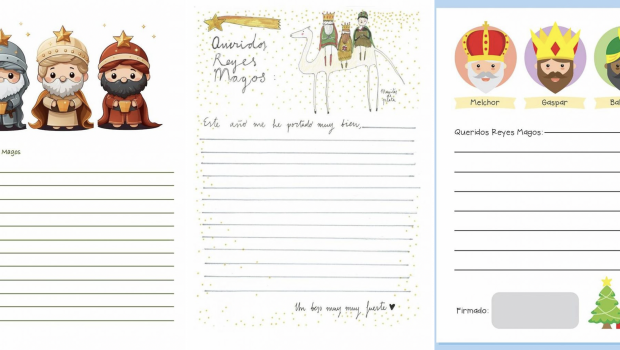 Magos
Queridos
Reyes
Magos
Este año me he portado muy bien,
Un beso muy muy fuerte
Melchor
Gaspar
Bal
Queridos Reyes Magos:
Firmado: